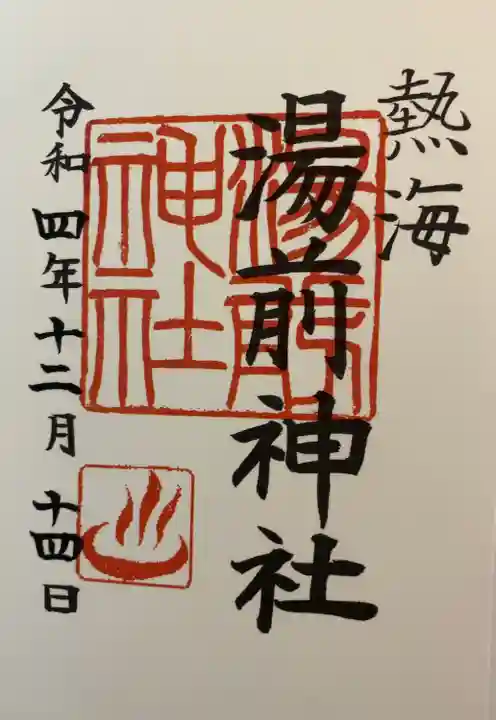 熱海
湯前神社
湯前神社
令和四年十二月十四日